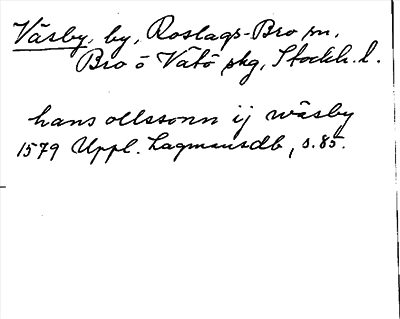 Väsby, by, Roslags-Bro sn,
Bro o Vätö skg, Stockh. l.
hans ollssonn ij wäsby
1579 Uppl. Lagmansdb, s. 85.